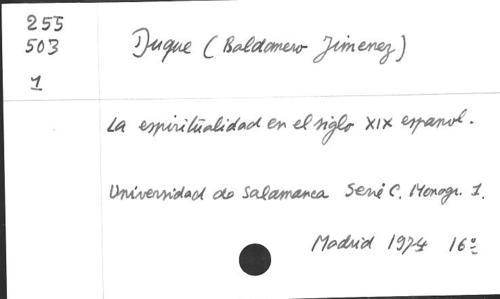 255
503
1
Duque (Baldomero Jimenez)
La espiritualidad en el siglo XIX espanol.
Universidad de Salamanca Serie C. Monogr. 1.
Madrid 1974 16º